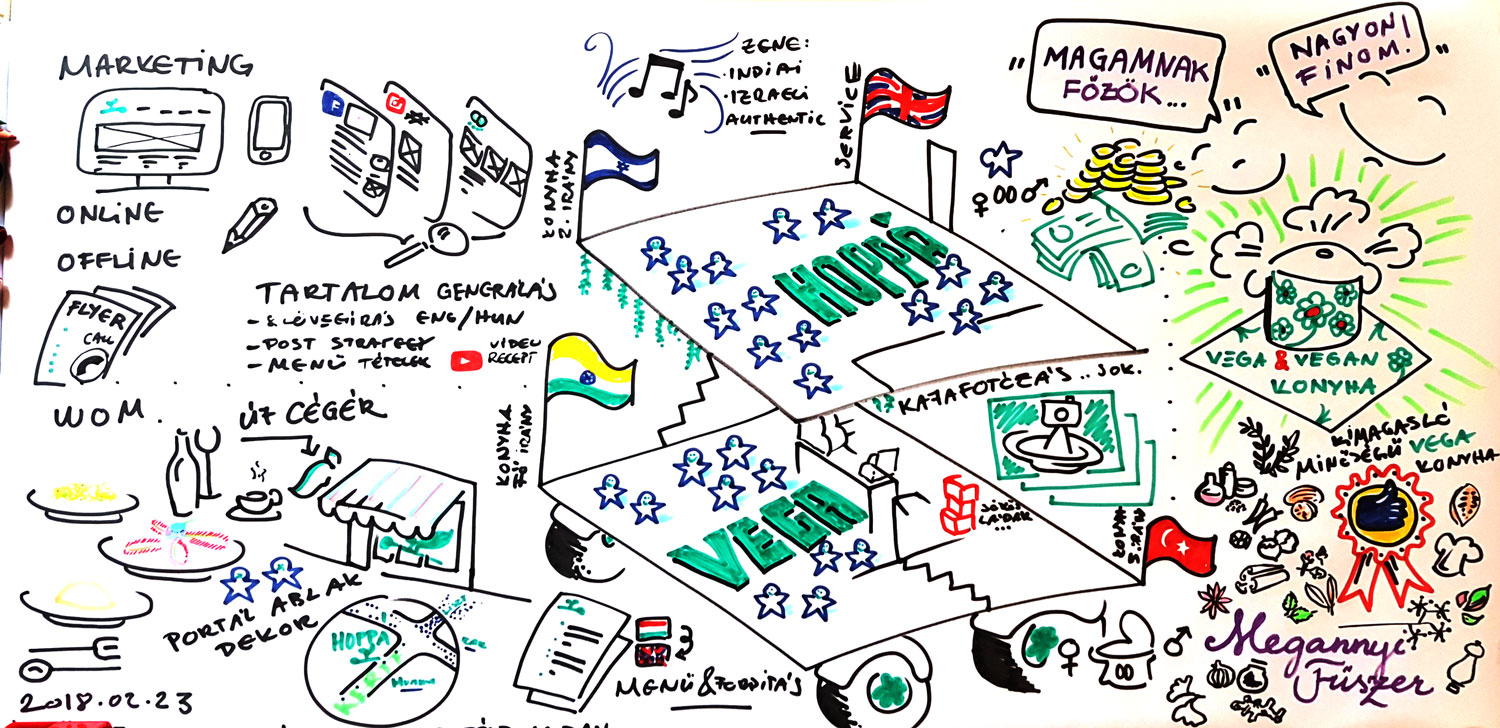 MARKETING
ONLINE
OFFLINE
FLYER
CALL
TARTALOM GENERÁLÁS
- SZÖVEGÍRÁS ENG/HUN
- POST STRATEGY
- MENÜ TÉTELEK
VIDEO
RECEPT
WOM.
ÚJ CÉGÉR
PORTÁL ABLAK
DEKOR
HOPPA
KERT
2018.02.23
ZENE:
· INDIAI
· IZRAELI
AUTHENTIC
KONYHA
2. IRÁNY
SERVICE
HOPPÁ
KONYHA
FŐ IRÁNY
VEGA
KAJAFOTÓZÁS .. SOK.
KONYHA
3. IRÁNY
MENÜ & FORDÍTÁS
" MAGAMNAK
FŐZÖK... "
" NAGYON
FINOM. "
VEGA & VEGAN
KONYHA
KIMAGASLÓ
MINŐSÉGŰ VEGA
KONYHA
Megannyi
Fűszer